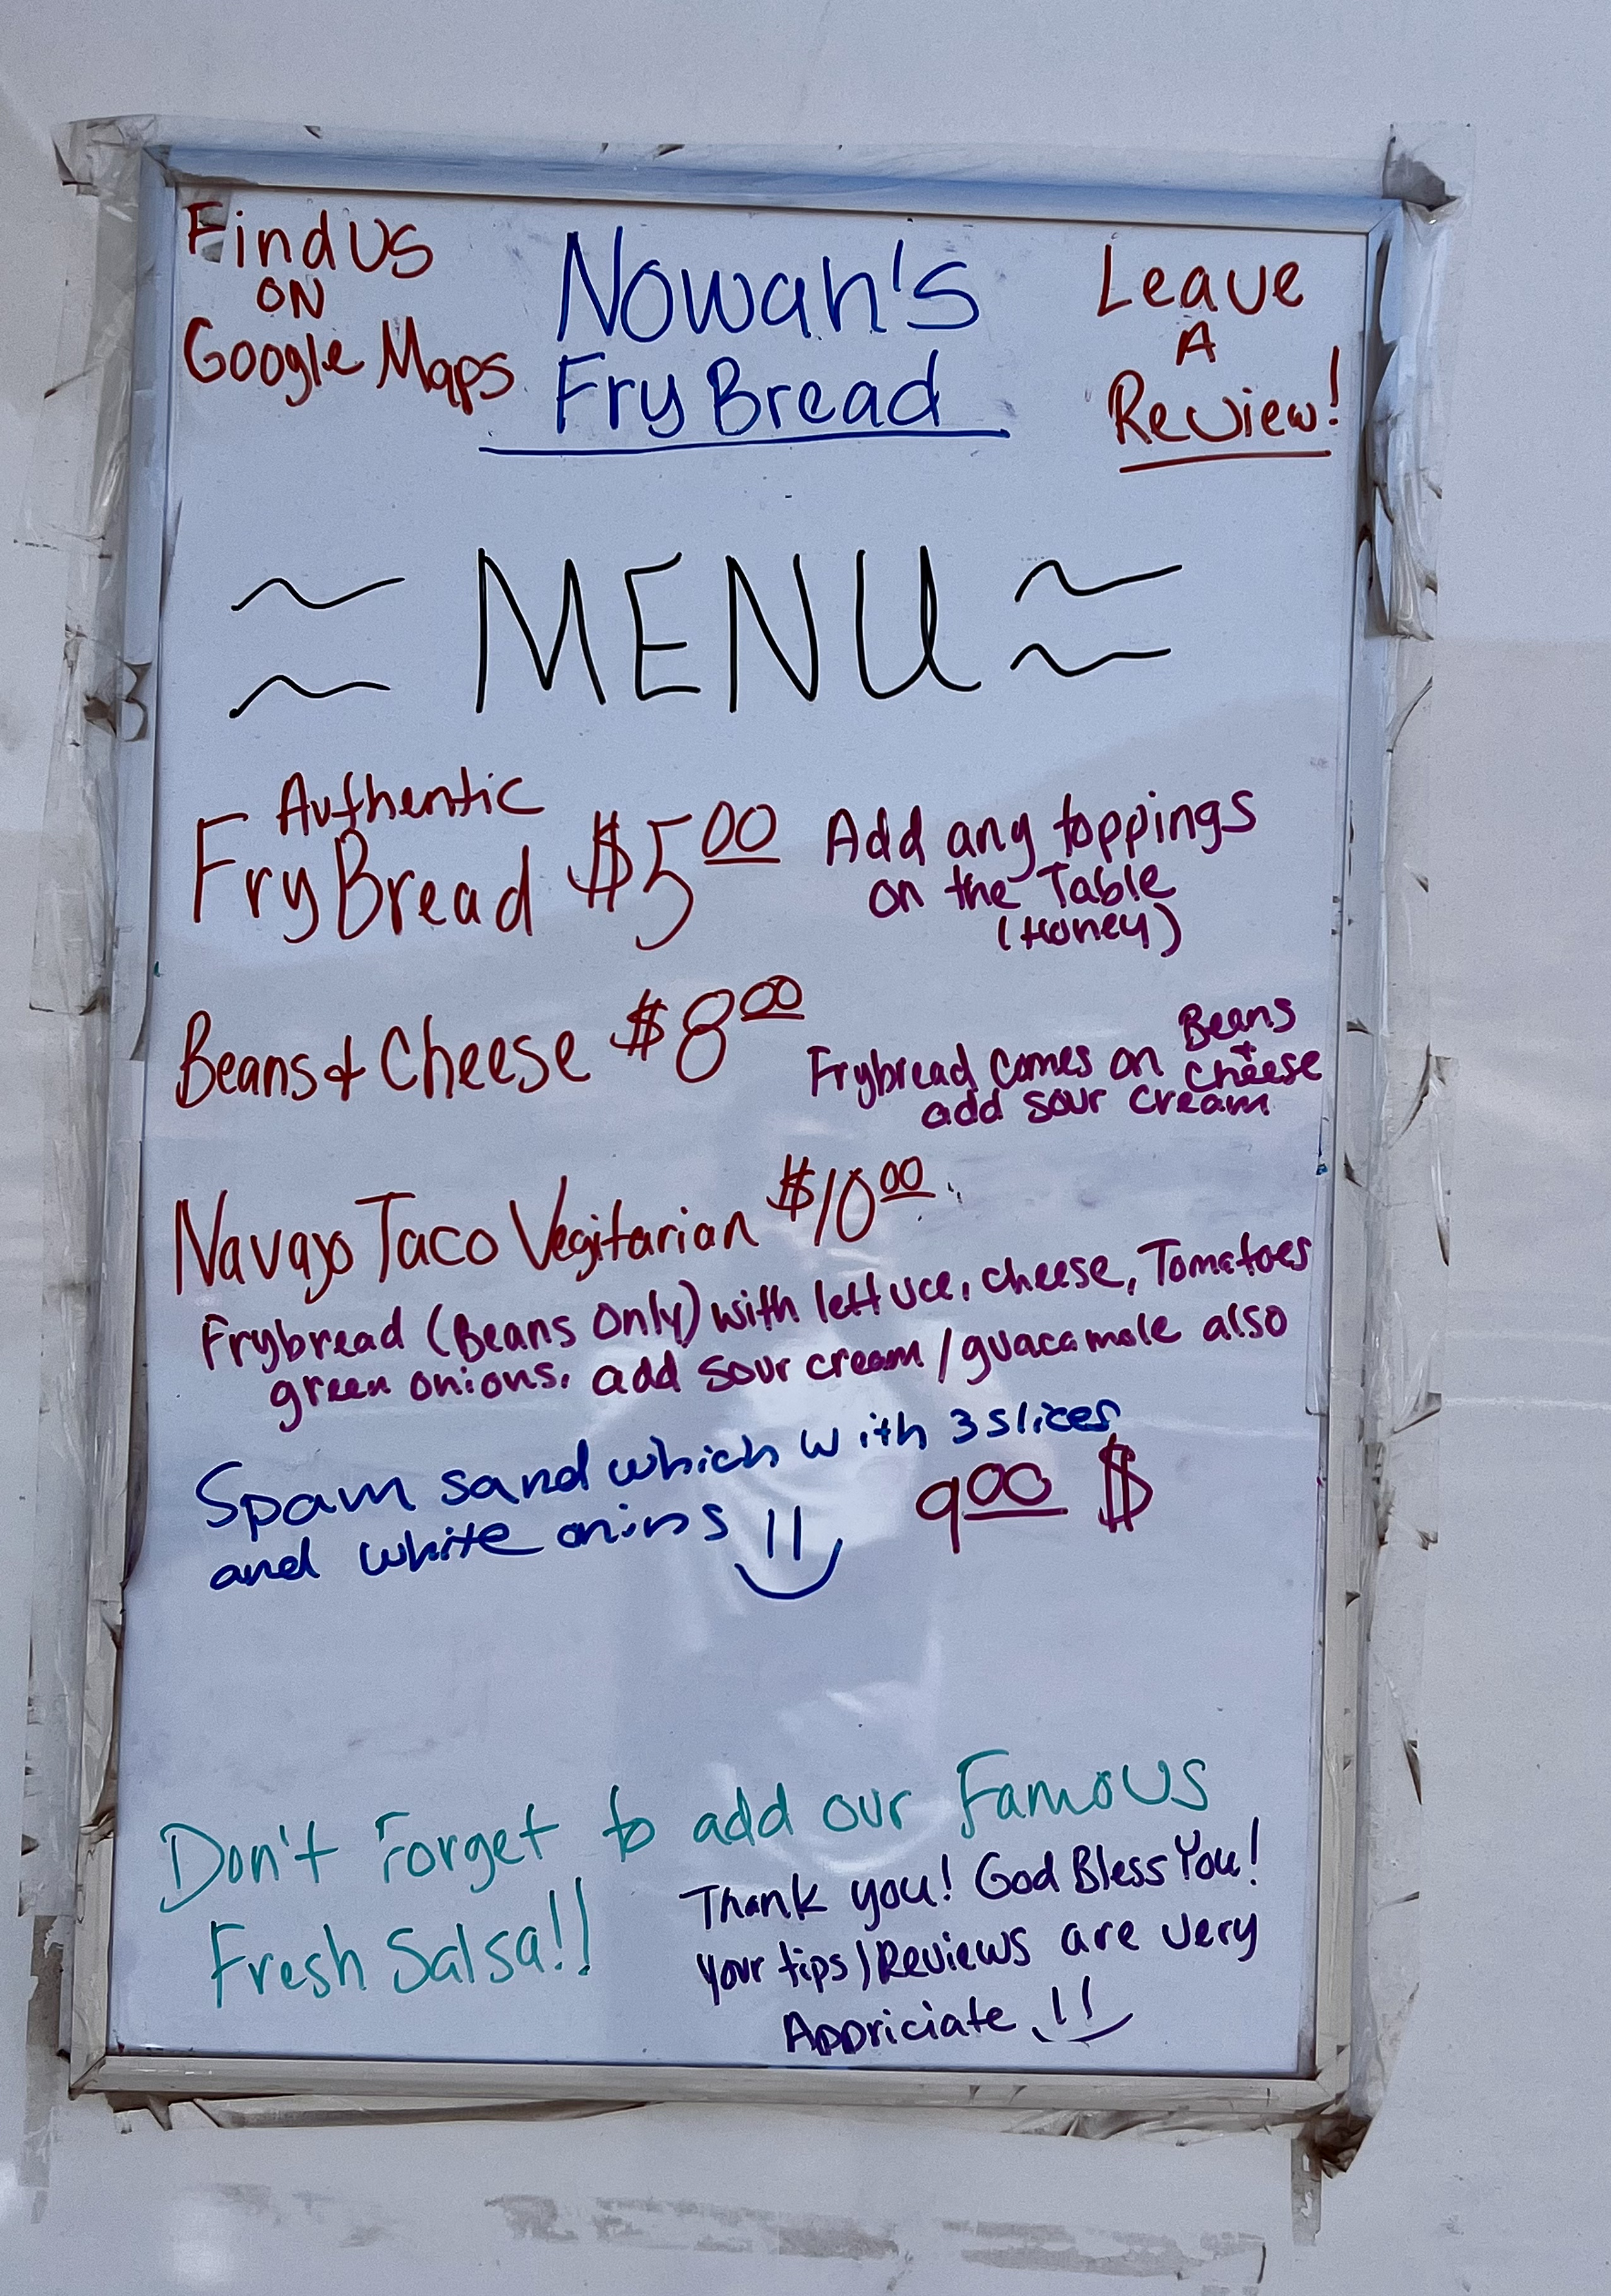 Find Us
ON
Google Maps
Nowah's
Fry Bread
Leave
A
Review!
~ MENU ~
~ ~
Authentic
Fry Bread $5.00
Add any toppings
on the Table
(Honey)
Beans & Cheese $8.00
Frybread comes on Beans
+ cheese
add sour cream
Navajo Taco Vegitarian $10.00
Frybread (Beans Only) with lettuce, cheese, Tomatoes
green onions. add sour cream / guacamole also
Spam sand which with 3 slices
and white onins
9.00 $
Don't Forget to add our Famous
Fresh Salsa!!
Thank you! God Bless You!
Your tips/Reviews are very
Appriciate